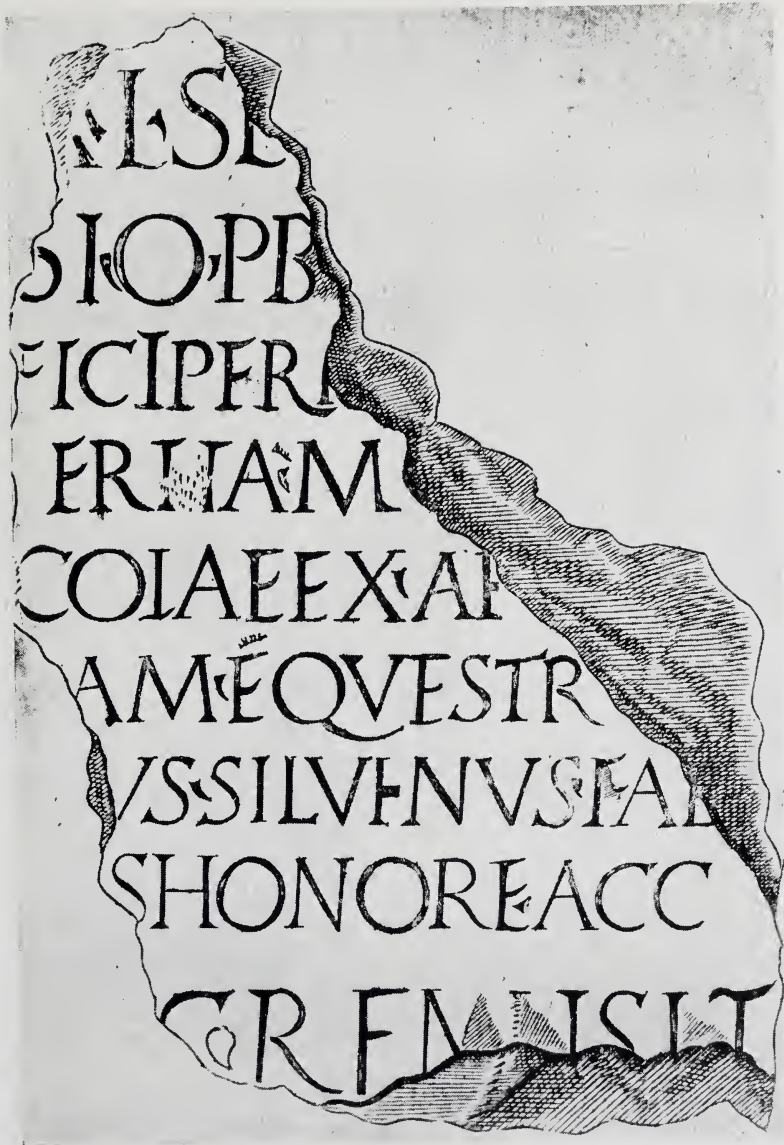 LSE
SIO·PB
FICIPER
ERIIAM
COIAEEX·AP
AM·ÉQVESTR
VS·SILVENVS·FAB
SHONORE·ACC
GREMIISIT